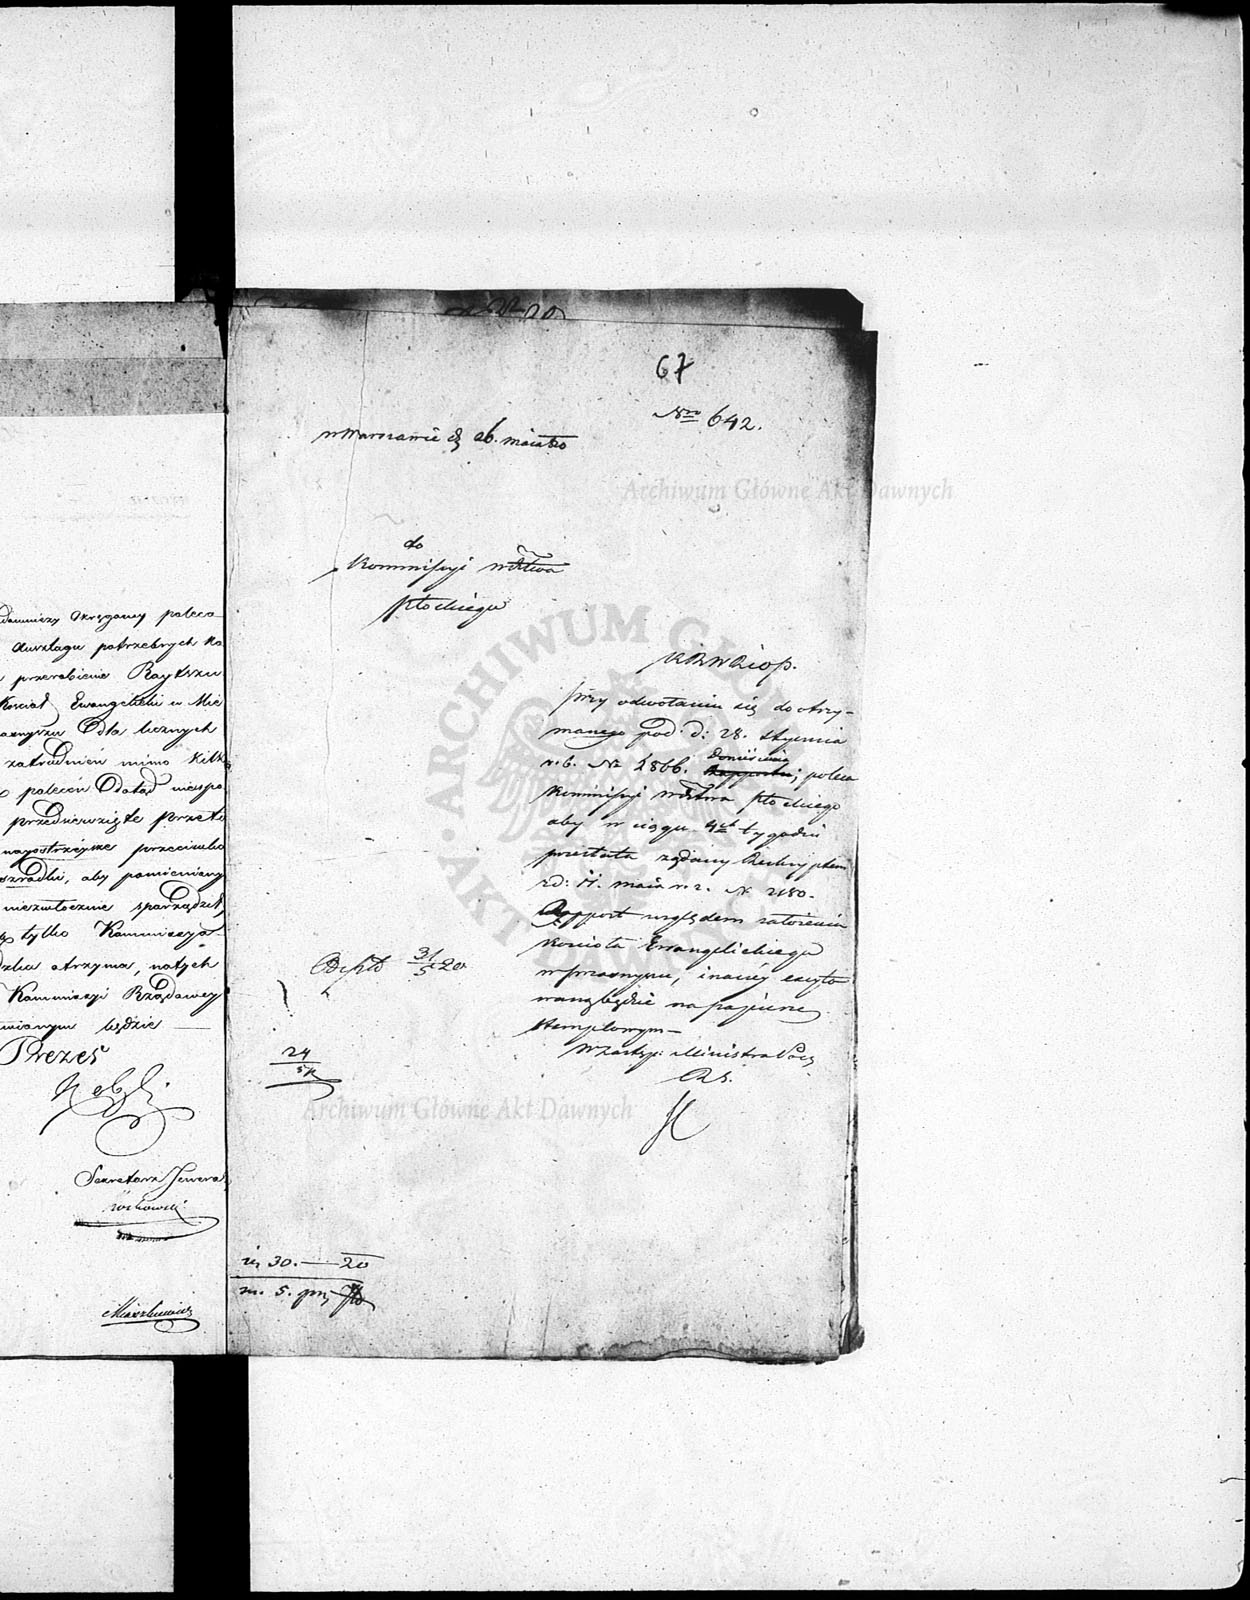 daminizy Okręgowy poleca
Anszlagu potrzebnych na
przerobienie Raytszu
Kościoł Ewangelicki w Mie
dla licznych
zatrudnień mimo kilka
poleceń Dotąd niespo
przedniewzięte przeto
nayostrzeysze przeciwko
środki, aby pomieniony
niezwłocznie sporządził,
tylko Kommissya
otrzyma, natych
Kommissyi Rządowey
będzie —
Prezes
Sekretarz Jeneral
67
Nro 642.
w Warszawie d. 26. maia 820
do
Kommissyi Wdztwa
Płockiego
K R W R i O p.
przy odwołaniu się do otrzy-
manego pod d: 28. stycznia
r. b. No 2866. doniesienia
Rapportu; poleca
Kommissyi Wdztwa Płockiego
aby w ciągu 4ch tygodni
przesłała żądany Reskryptem
z d: 11. maia r. z. N. 2180.
Rapport względem założenia
kościoła Ewangelickiego
w Przasnyszu, inaczey excyto
waną będzie na papierze
stemplowym —
W Zastęp: Ministra
R. S.
31/5 20
24/5
30. — 20
m. 5.
Archiwum Główne Akt Dawnych
ARCHIWUM GŁÓWNE AKT DAWNYCH
Archiwum Główne Akt Dawnych